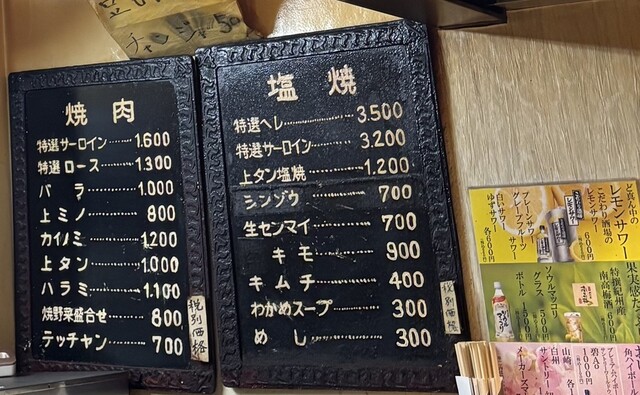 チャンジャ 50
焼肉
特選サーロイン……1.600
特選ロース……1.300
バラ……1.000
上ミノ……800
カイノミ……1.200
上タン……1.000
ハラミ……1.100
焼野菜盛合せ……800
テッチャン……700
税別価格
塩焼
特選ヘレ……3.500
特選サーロイン……3.200
上タン塩焼……1.200
シンゾウ……700
生センマイ……700
キモ……900
キムチ……400
わかめスープ……300
めし……300
税別価格
ど真ん中の
レモンサワー
こだわり酒場の
レモンサワー
プレーンサワー
グレープフルーツサワー
白いサワー
ゆずサワー
各600円
特撰紀州産
南高梅酒
ソウルマッコリ
グラス 500円
ボトル
角ハイボール
碧Ao
山崎
白州
メーカーズマーク